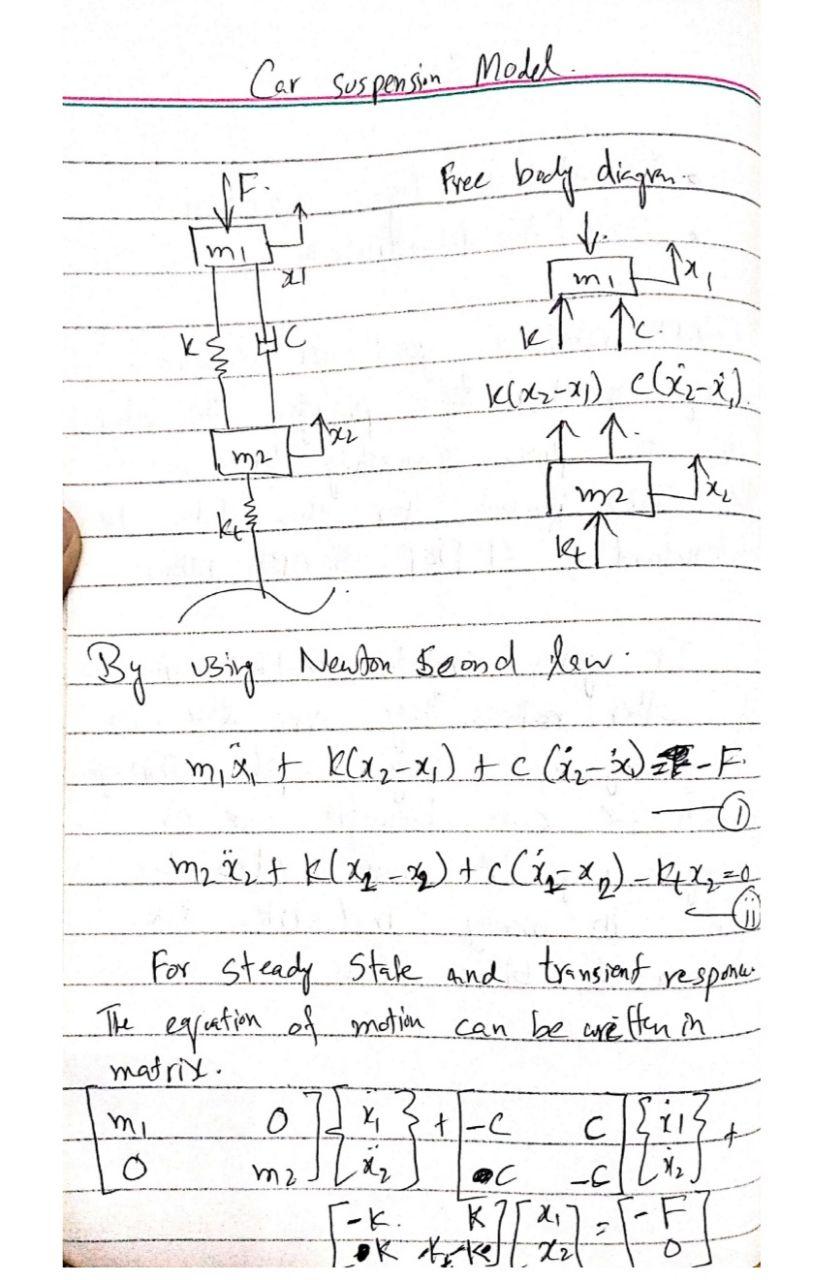 Car suspension Model.
F.
m1
x1
k
C
m2
x2
kt
Free body diagram.
m1
x1
k
c
k(x2-x1) c(ẋ2-ẋ1).
m2
x2
kt
By using Newton Second law.
m1ẍ1 + k(x2-x1) + c(ẋ2-ẋ1) = -F.
(i)
m2ẍ2 + k(x1-x2) + c(ẋ1-x2) - ktx2=0
(ii)
For steady State and transient response.
The equation of motion can be written in
matrix.
[m1 0] {ẍ1} + [-c c] {ẋ1} +
[0 m2] {ẍ2} [c -c] {ẋ2}
[-k. k] [x1] = [-F]
[k] [x2] [0]